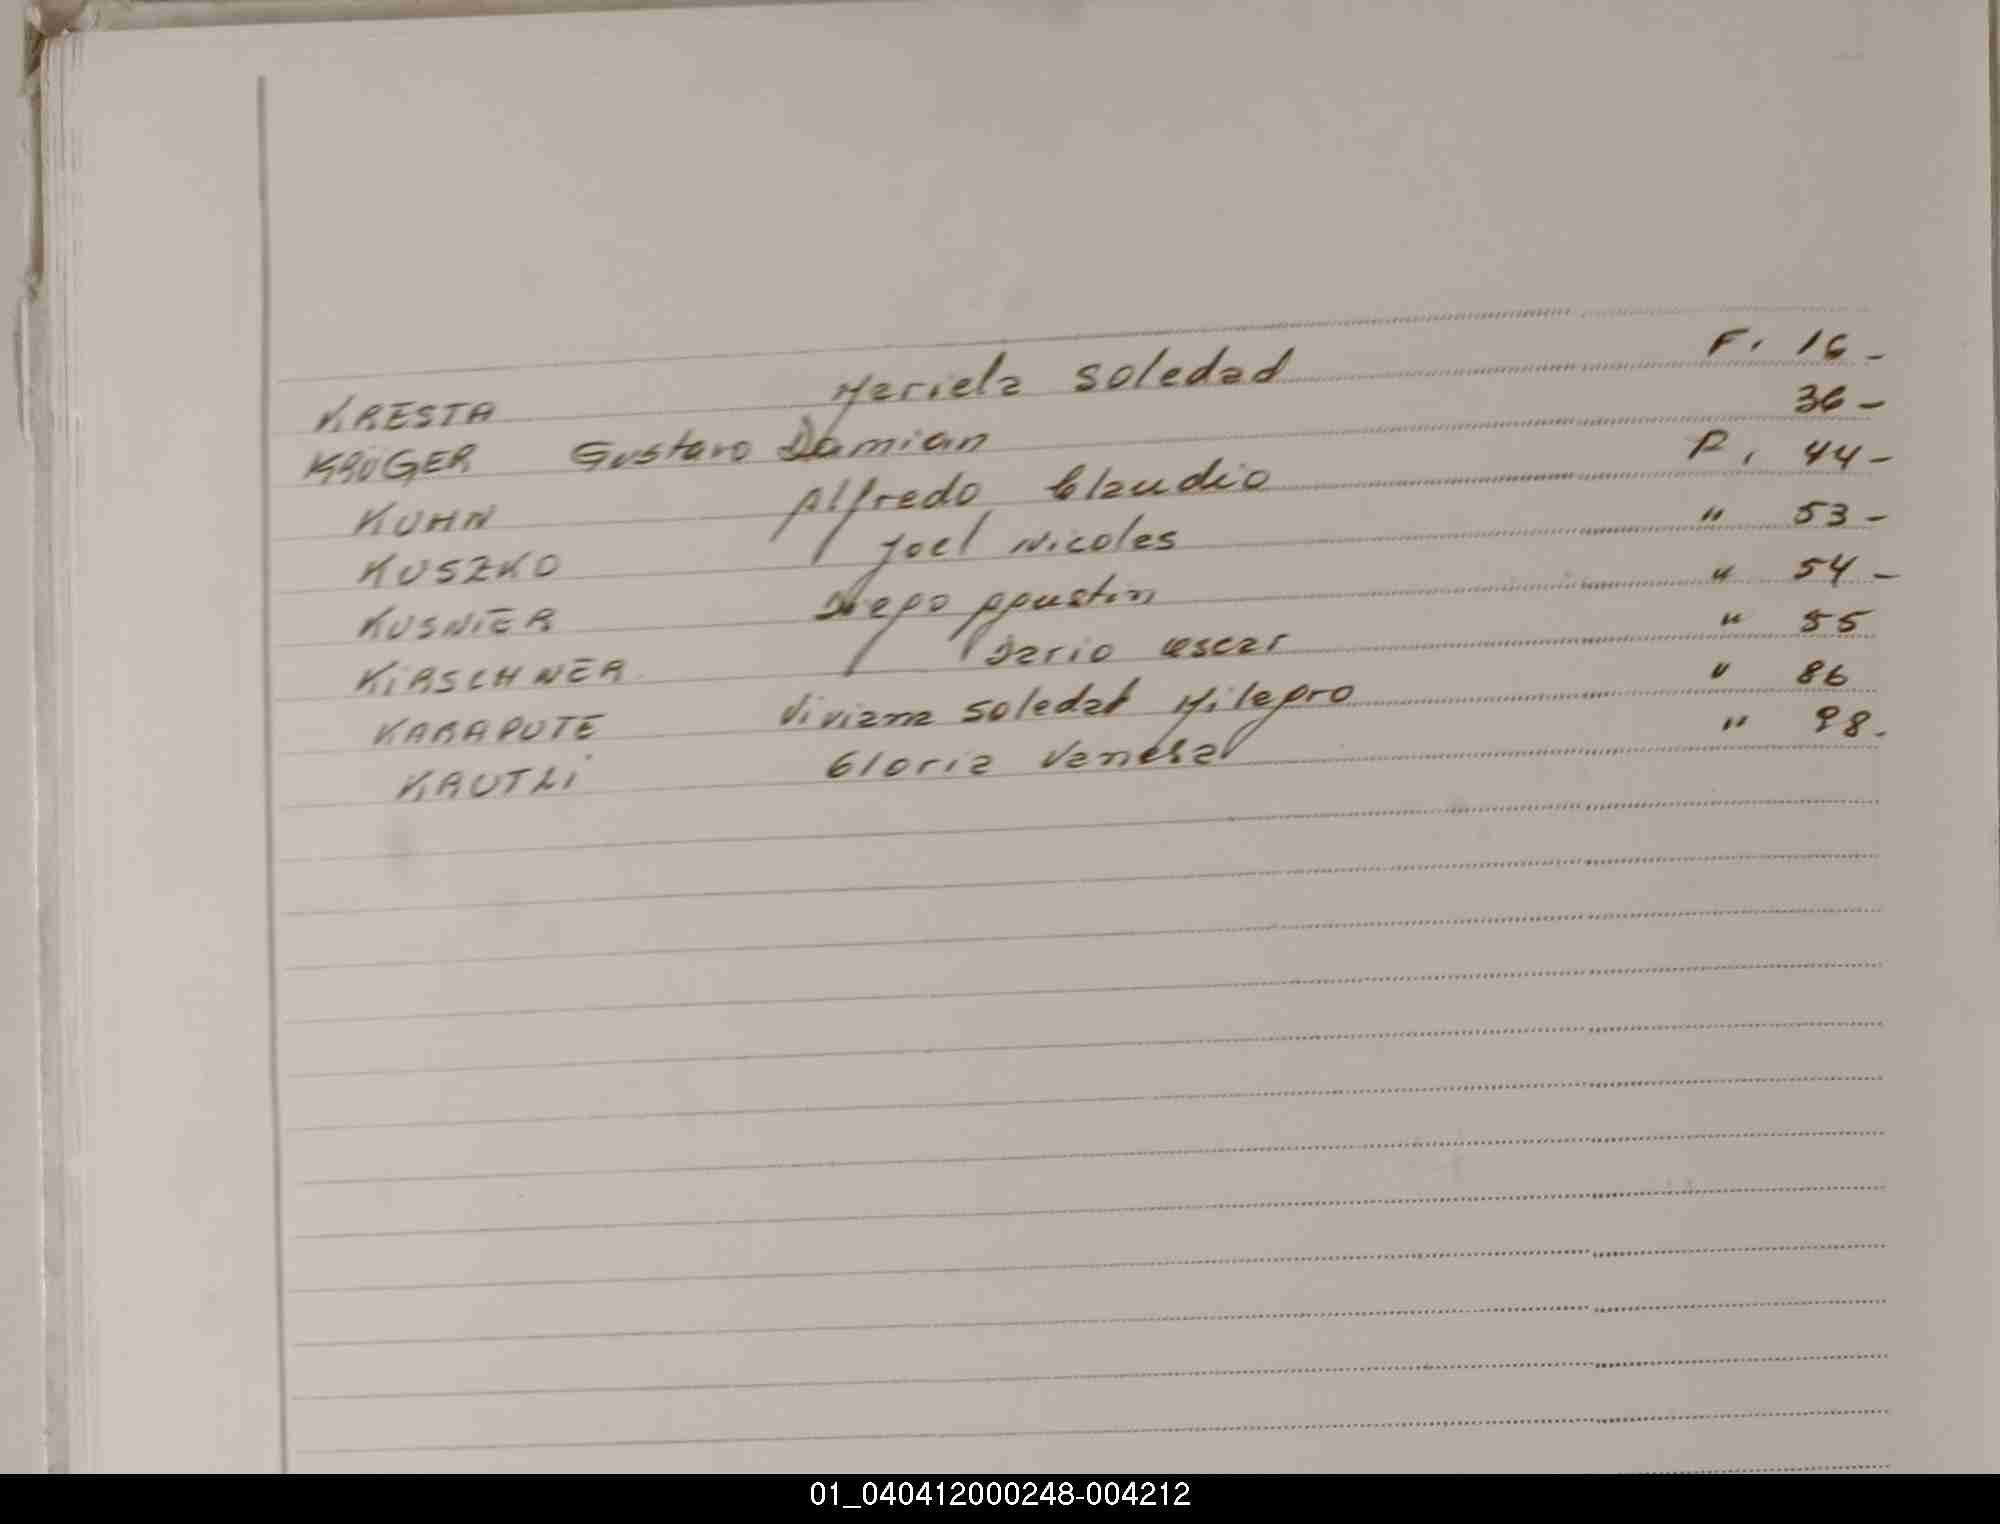 KRESTA Mariela Soledad F. 16 -
KRÜGER Gustavo Damian 36 -
KUHN Alfredo Claudio P. 44 -
KUSZKO Joel Nicolas " 53 -
KUSNIER Diego Agustin " 54 -
KIRSCHNER Dario Oscar " 55
KARAPUTE Viviana Soledad Milagro " 86
KAUTZI Gloria Vanesa " 98.
01_040412000248-004212